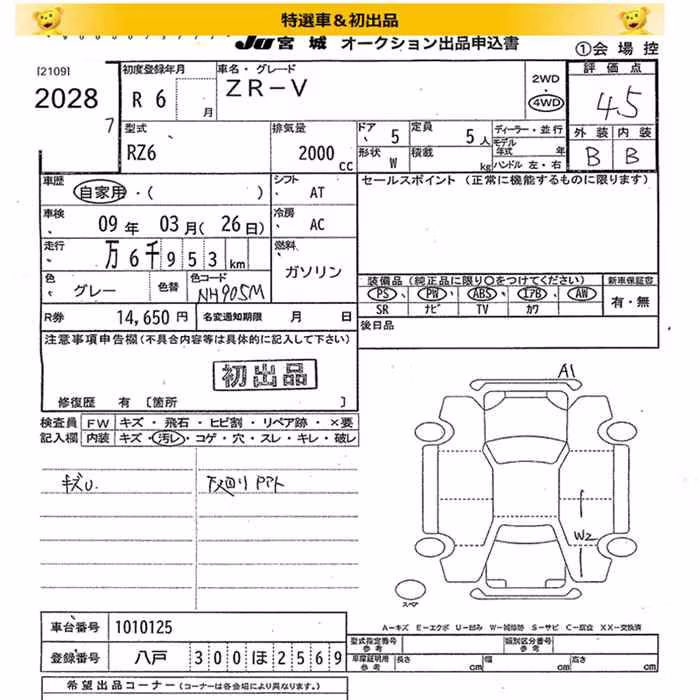 特選車＆初出品
JU宮城 オークション出品申込書
①会場控
[2109]
2028
7
初度登録年月
R 6 月
車名・グレード
ZR-V
2WD
4WD
評価点
4.5
外装 内装
B B
型式
RZ6
排気量
2000 cc
ドア 5
定員 5人
形状 W
積載 kg
ディーラー・並行
モデル年式 年
ハンドル 左・右
車歴
自家用・( )
シフト
AT
セールスポイント（正常に機能するものに限ります）
車検
09年 03月( 26日)
冷房
AC
走行
万6千953km
燃料
ガソリン
色
グレー
色替
色コード
NH905M
装備品（純正品に限り○をつけてください）
新車保証書
PS PW ABS エアB AW
SR ナビ TV カワ
有・無
R券 14,650円
名変通知期限 月 日
後日品
注意事項申告欄(不具合内容等は具体的に記入して下さい)
初出品
修復歴 有 [箇所 ]
検査員記入欄
FW キズ・飛石・ヒビ割・リペア跡・×要
内装 キズ・汚レ・コゲ・穴・スレ・キレ・破レ
キズU.
下廻り
A1
W2
スペア
A－キズ E－エクボ U－凹み W－補修跡 S－サビ C－腐食 XX－交換済
車台番号 1010125
登録番号 八戸 300ほ2569
型式指定番号 参考
類別区分番号 参考
車庫証明用 参考 長さ cm 幅 cm 高さ cm
希望出品コーナー(コーナーは各会場により異なります。)